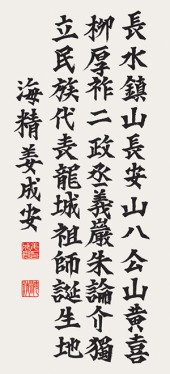 長水鎮山長安山八公山黃喜
柳厚祚二政丞義巖朱論介獨
立民族代表龍城祖師誕生地
海精姜成安